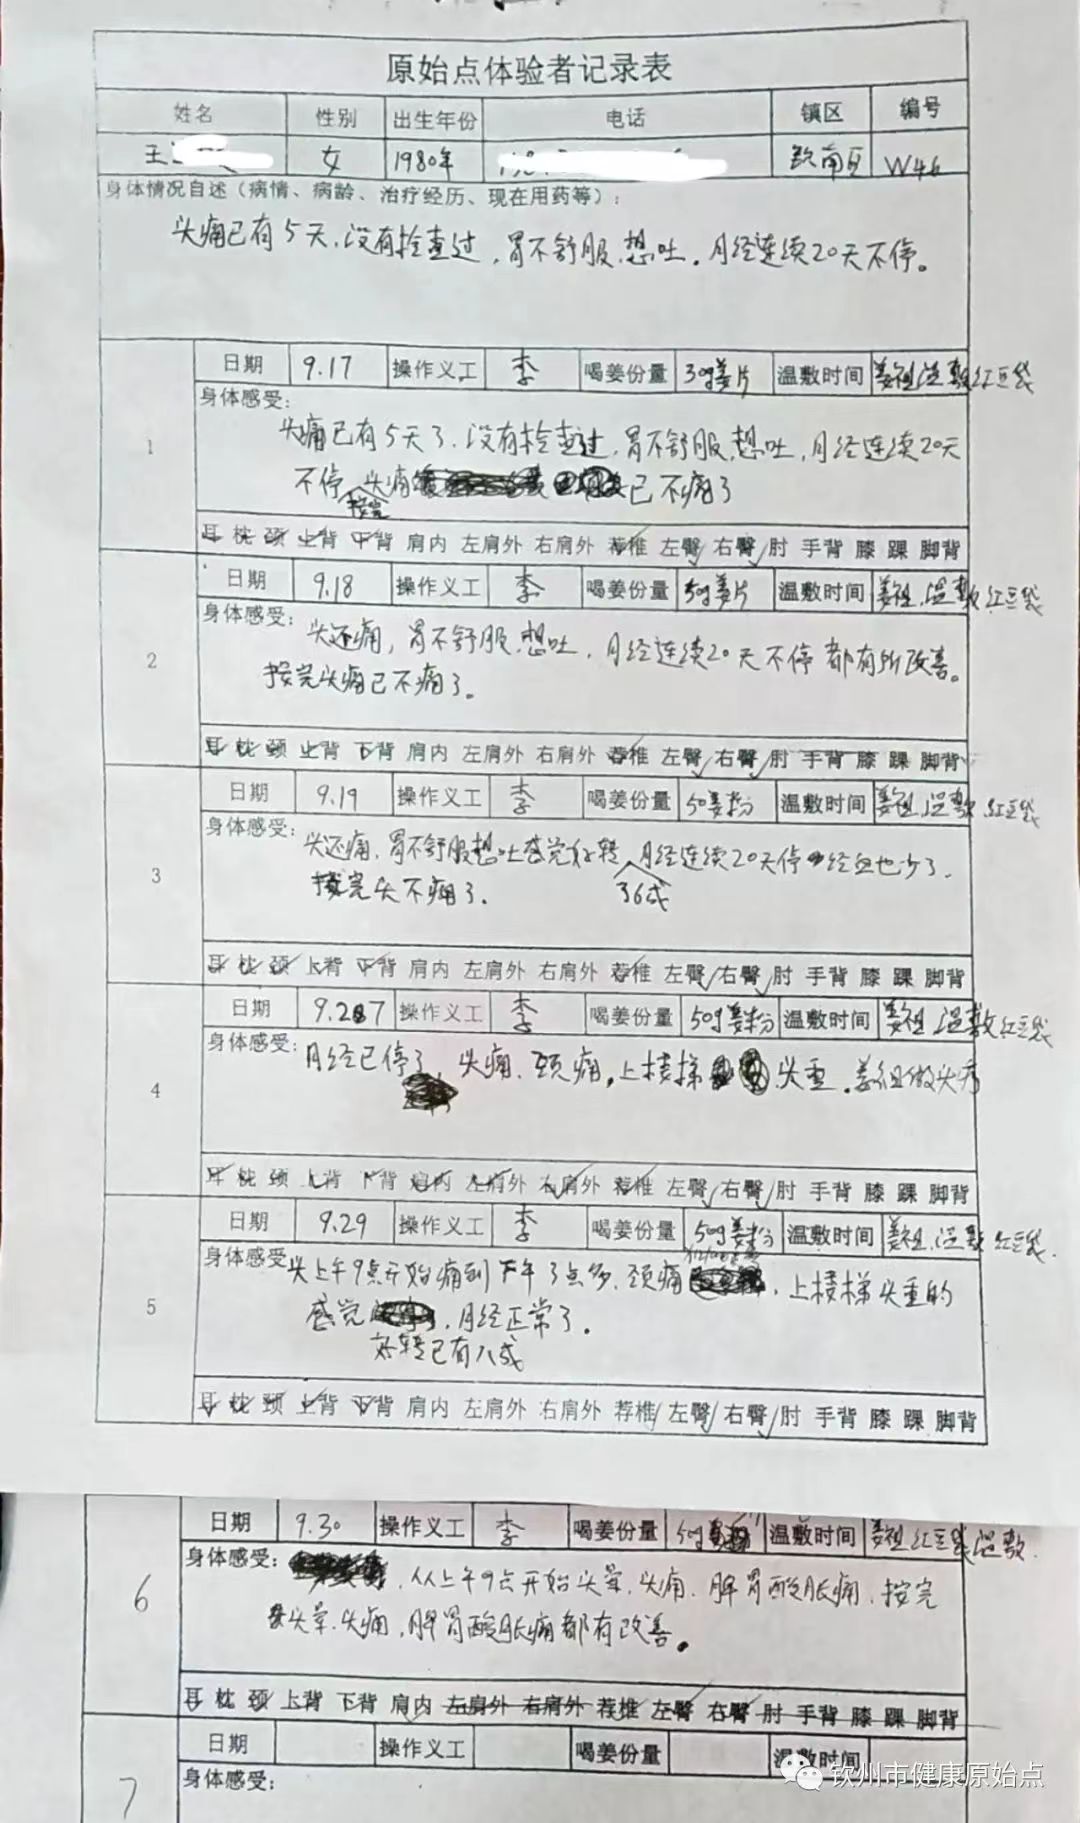 原始点体验者记录表
姓名 性别 出生年份 电话 镇区 编号
王 女 1980年 钦南区 W46
身体情况自述（病情、病龄、治疗经历、现在用药等）：
头痛已有5天，没有检查过，胃不舒服，想吐，月经连续20天不停。
1
日期 9.17 操作义工 李 喝姜份量 30g姜片 温敷时间 姜粗，温敷红豆袋
身体感受：
头痛已有5天了，没有检查过，胃不舒服，想吐，月经连续20天
不停，按完头痛已不痛了
耳 枕 颈 上背 下背 肩内 左肩外 右肩外 荐椎 左臀 右臀 肘 手背 膝 踝 脚背
2
日期 9.18 操作义工 李 喝姜份量 50g姜片 温敷时间 姜粗，温敷红豆袋
身体感受：
头还痛，胃不舒服，想吐，月经连续20天不停都有所改善。
按完头痛已不痛了。
耳 枕 颈 上背 下背 肩内 左肩外 右肩外 荐椎 左臀 右臀 肘 手背 膝 踝 脚背
3
日期 9.19 操作义工 李 喝姜份量 50姜粉 温敷时间 姜粗，温敷，红豆袋
身体感受：
头还痛，胃不舒服想吐感觉好转，月经连续20天停经血也少了，
按完头不痛了。 36成
耳 枕 颈 上背 下背 肩内 左肩外 右肩外 荐椎 左臀 右臀 肘 手背 膝 踝 脚背
4
日期 9.27 操作义工 李 喝姜份量 50g姜粉 温敷时间 姜粗，温敷红豆袋
身体感受：
月经已停了，头痛，颈痛，上楼梯头重，姜粗做头疗
耳 枕 颈 上背 下背 肩内 左肩外 右肩外 荐椎 左臀 右臀 肘 手背 膝 踝 脚背
5
日期 9.29 操作义工 李 喝姜份量 50g姜粉 温敷时间 姜粗，温敷红豆袋
身体感受：
头上午9点开始痛到下午3点多，颈痛，上楼梯头重的
感觉，月经正常了。
好转已有八成
耳 枕 颈 上背 下背 肩内 左肩外 右肩外 荐椎 左臀 右臀 肘 手背 膝 踝 脚背
6
日期 9.30 操作义工 李 喝姜份量 50g姜粉 温敷时间 姜粗红豆袋温敷
身体感受：
从上午9点开始头晕，头痛，脾胃酸胀痛，按完
头晕，头痛，脾胃酸胀痛都有改善。
耳 枕 颈 上背 下背 肩内 左肩外 右肩外 荐椎 左臀 右臀 肘 手背 膝 踝 脚背
7
日期 操作义工 喝姜份量 温敷时间
身体感受：
钦州市健康原始点